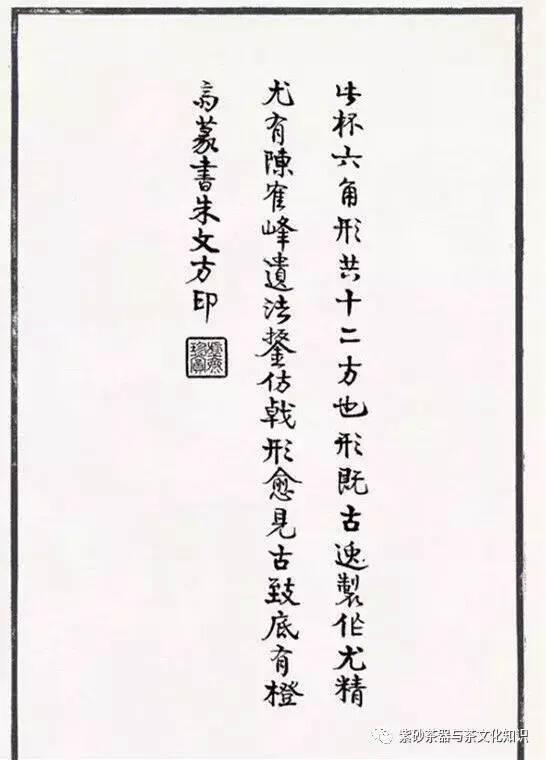 此杯六角形共十二方也形既古逸製作尤精
尤有陳寉峰遺法鋬仿戟形愈見古致底有橙
高篆書朱文方印
紫砂茶器与茶文化知识